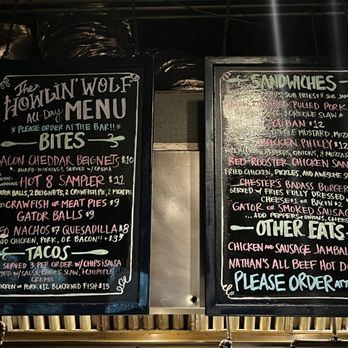 The
HOWLIN' WOLF
All Day MENU
*PLEASE ORDER AT THE BAR!!*
BITES
BACON CHEDDAR BEIGNETS $10
HOT 8 SAMPLER $11
CRAWFISH OR MEAT PIES $9
GATOR BALLS $9
NACHOS $9 QUESADILLA $8
ADD CHICKEN, PORK, OR BACON!! +$3
TACOS
SERVED 3 PER ORDER W/ CHIPS & SALSA
CHICKEN OR PORK $12 BLACKENED FISH $13
SANDWICHES
PULLED PORK
CUBAN $12
PICKLES, MUSTARD, MOZZ
CHICKEN PHILLY $12
RED ROOSTER CHICKEN SAN
FRIED CHICKEN, PICKLES, AND AWESOME S
CHESTER'S BADASS BURGER
SERVED W/ FRIES FULLY DRESSED
CHEESE $1 OR BACON $2
GATOR OR SMOKED SAUSAG
ADD PEPPERS & ONIONS, CHEES
OTHER EATS
CHICKEN AND SAUSAGE JAMBAL
NATHAN'S ALL BEEF HOT DO
PLEASE ORDER AT